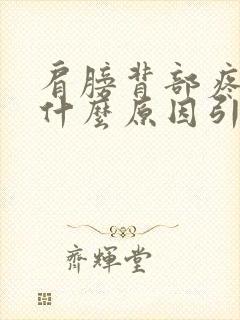 肩膀背部疼
什麼原因引
齊輝堂